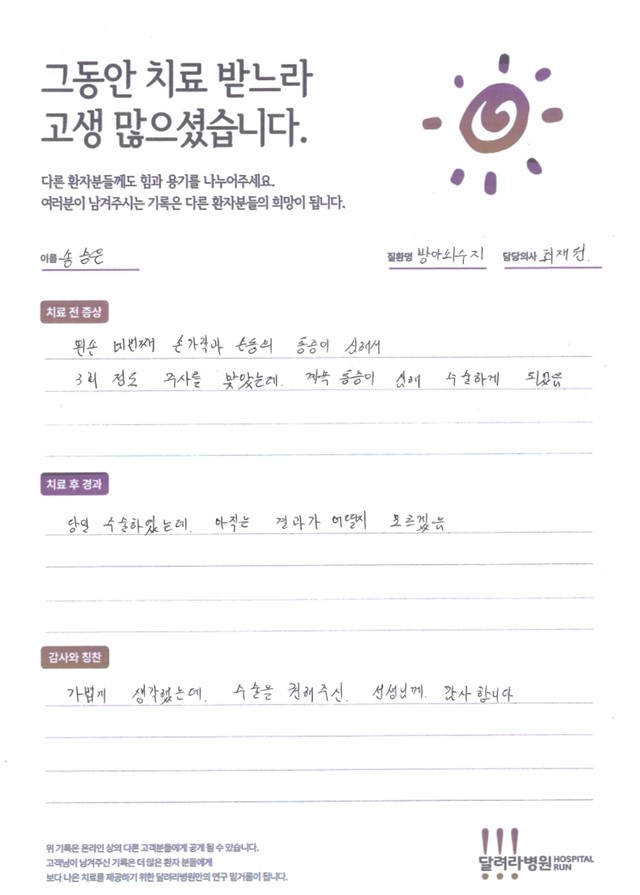 그동안 치료 받느라
고생 많으셨습니다.
다른 환자분들께도 힘과 용기를 나누어주세요.
여러분이 남겨주시는 기록은 다른 환자분들의 희망이 됩니다.
이름 송승은 질환명 방아쇠수지 담당의사 최재원.
치료 전 증상
왼손 네번째 손가락과 손등의 통증이 심해서
3회 정도 주사를 맞았는데. 계속 통증이 심해 수술하게 되었음
치료 후 경과
당일 수술하였는데. 아직는 결과가 어떨지 모르겠음
감사와 칭찬
가볍게 생각했는데. 수술을 권해주신. 선생님께. 감사합니다.
위 기록은 온라인 상의 다른 고객분들에게 공개 될 수 있습니다.
고객님이 남겨주신 기록은 더 많은 환자 분들에게
보다 나은 치료를 제공하기 위한 달려라병원만의 연구 밑거름이 됩니다.
달려라병원 HOSPITAL RUN